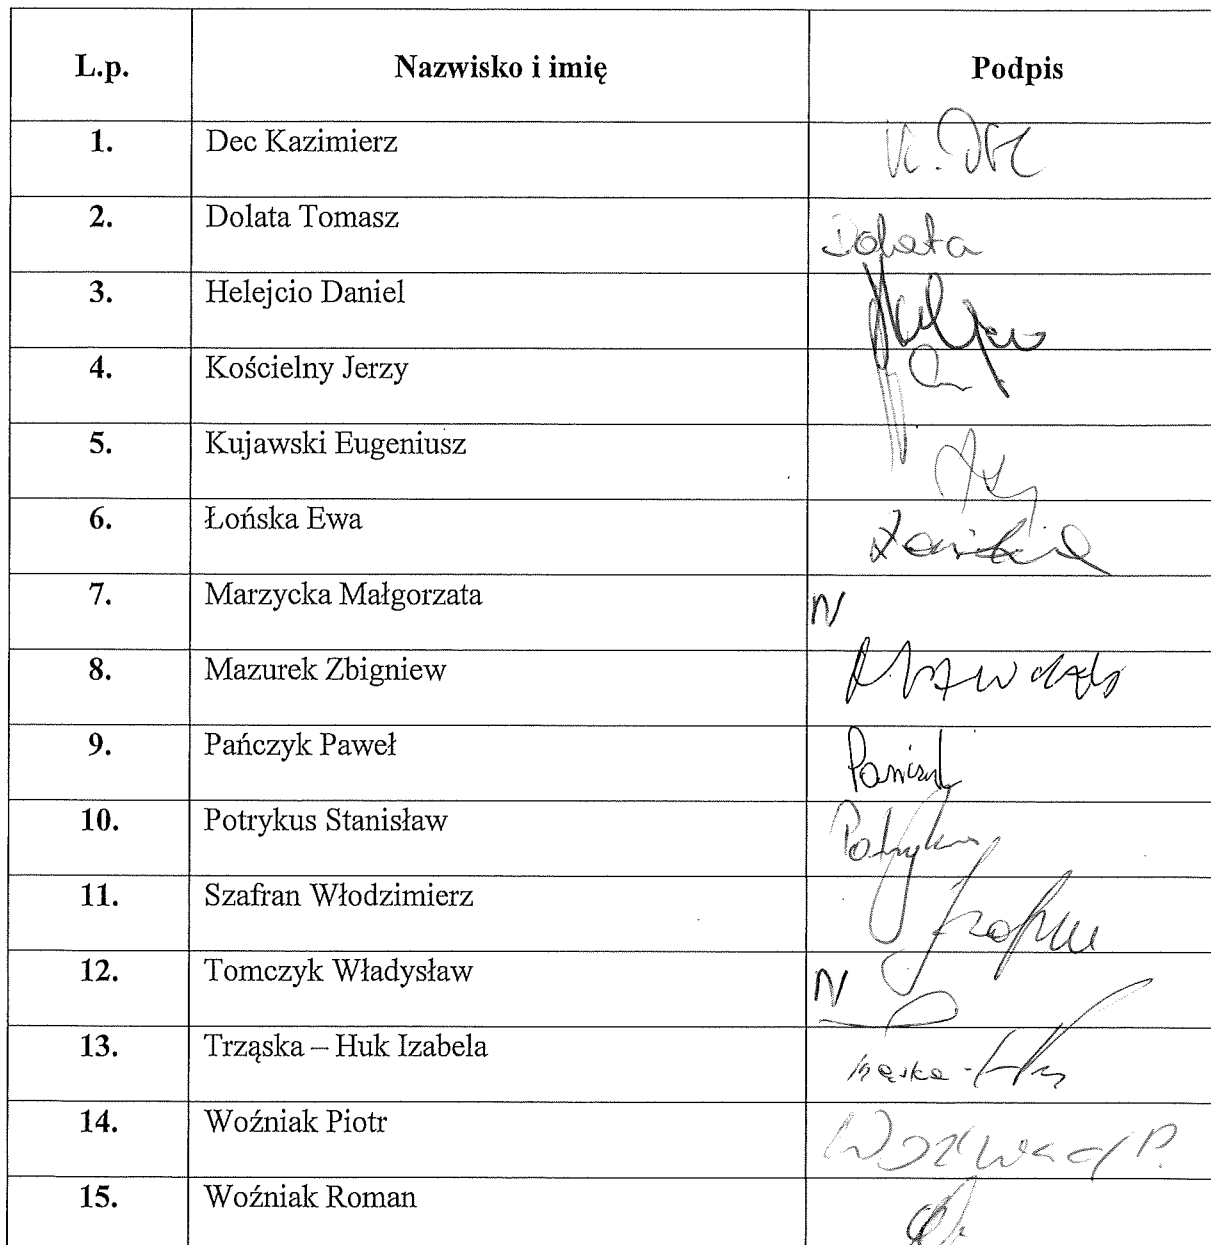 L.p. Nazwisko i imię Podpis
1. Dec Kazimierz K. Dec
2. Dolata Tomasz Dolata
3. Helejcio Daniel
4. Kościelny Jerzy
5. Kujawski Eugeniusz
6. Łońska Ewa Łońska
7. Marzycka Małgorzata N
8. Mazurek Zbigniew
9. Pańczyk Paweł
10. Potrykus Stanisław
11. Szafran Włodzimierz
12. Tomczyk Władysław N
13. Trząska – Huk Izabela
14. Woźniak Piotr Woźniak P.
15. Woźniak Roman